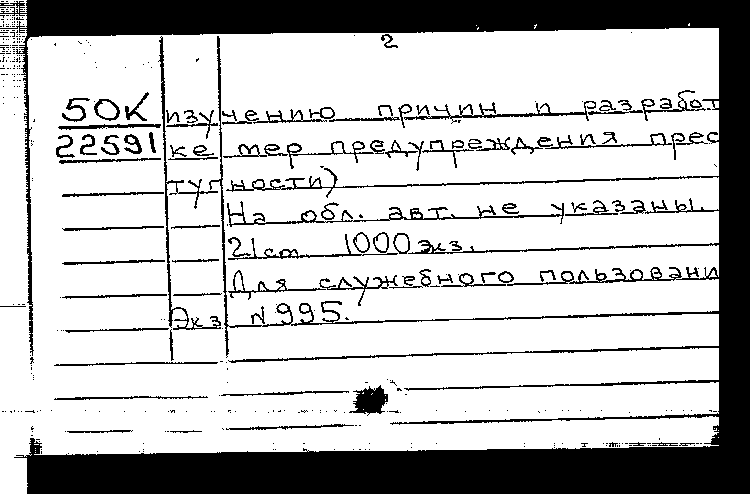 2
50К изучению причин и разработ
22591 ке мер предупреждения прес
тупности)
На обл. авт. не указаны.
21см 1000 экз.
Для служебного пользовани
Экз N 995.